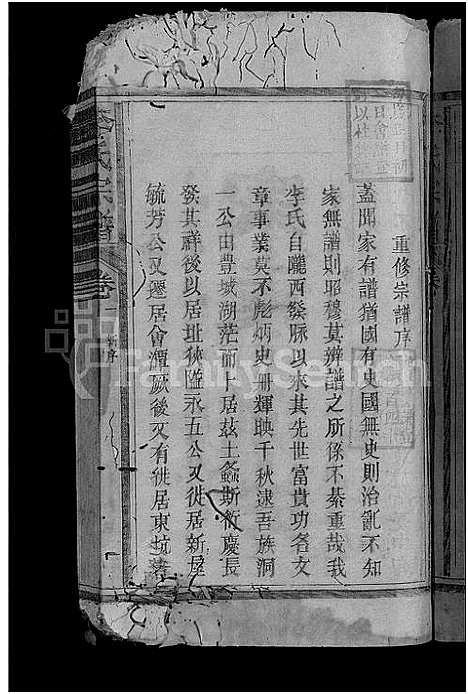 重修宗譜序
蓋聞家有譜猶國有史國無史則治亂不知
家無譜則昭穆莫辨譜之所係不綦重哉我
李氏自隴西發脈以來其先世富貴功名文
章事業莫不彪炳史冊輝映千秋逮吾族洞
一公由豐城湖茫而卜居茲土螽斯衍慶長
發其祥後以居址狹隘永五公又徙居新屋
毓芳公又遷居會潭厥後又有徙居東坑
李氏宗譜
卷一
序
FamilySearch